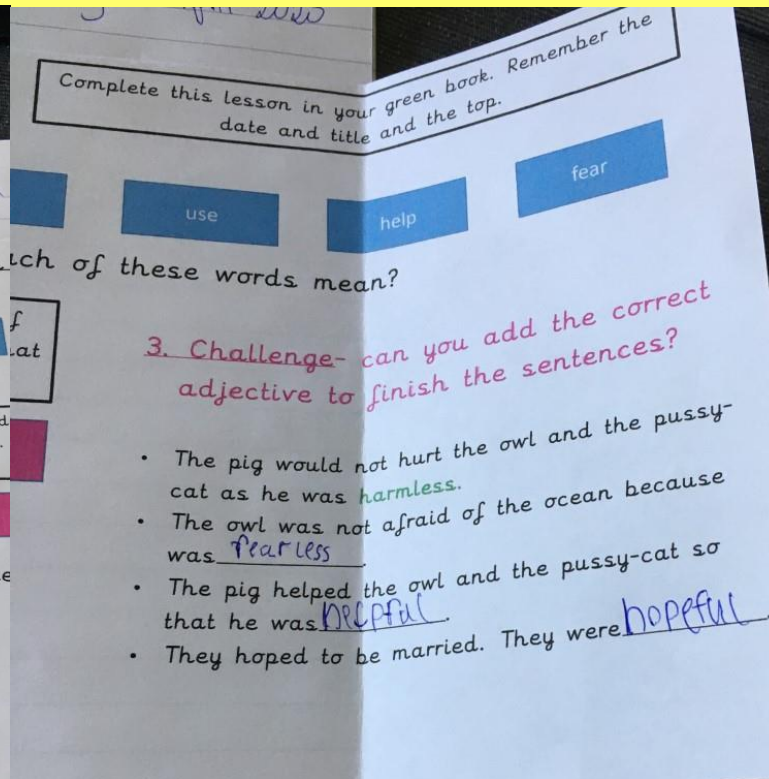 2020
Complete this lesson in your green book. Remember the
date and title and the top.
use
help
fear
of these words mean?
3. Challenge- can you add the correct
adjective to finish the sentences?
• The pig would not hurt the owl and the pussy-
cat as he was harmless.
• The owl was not afraid of the ocean because
was fearless.
• The pig helped the owl and the pussy-cat so
that he was helpful.
• They hoped to be married. They were hopeful.